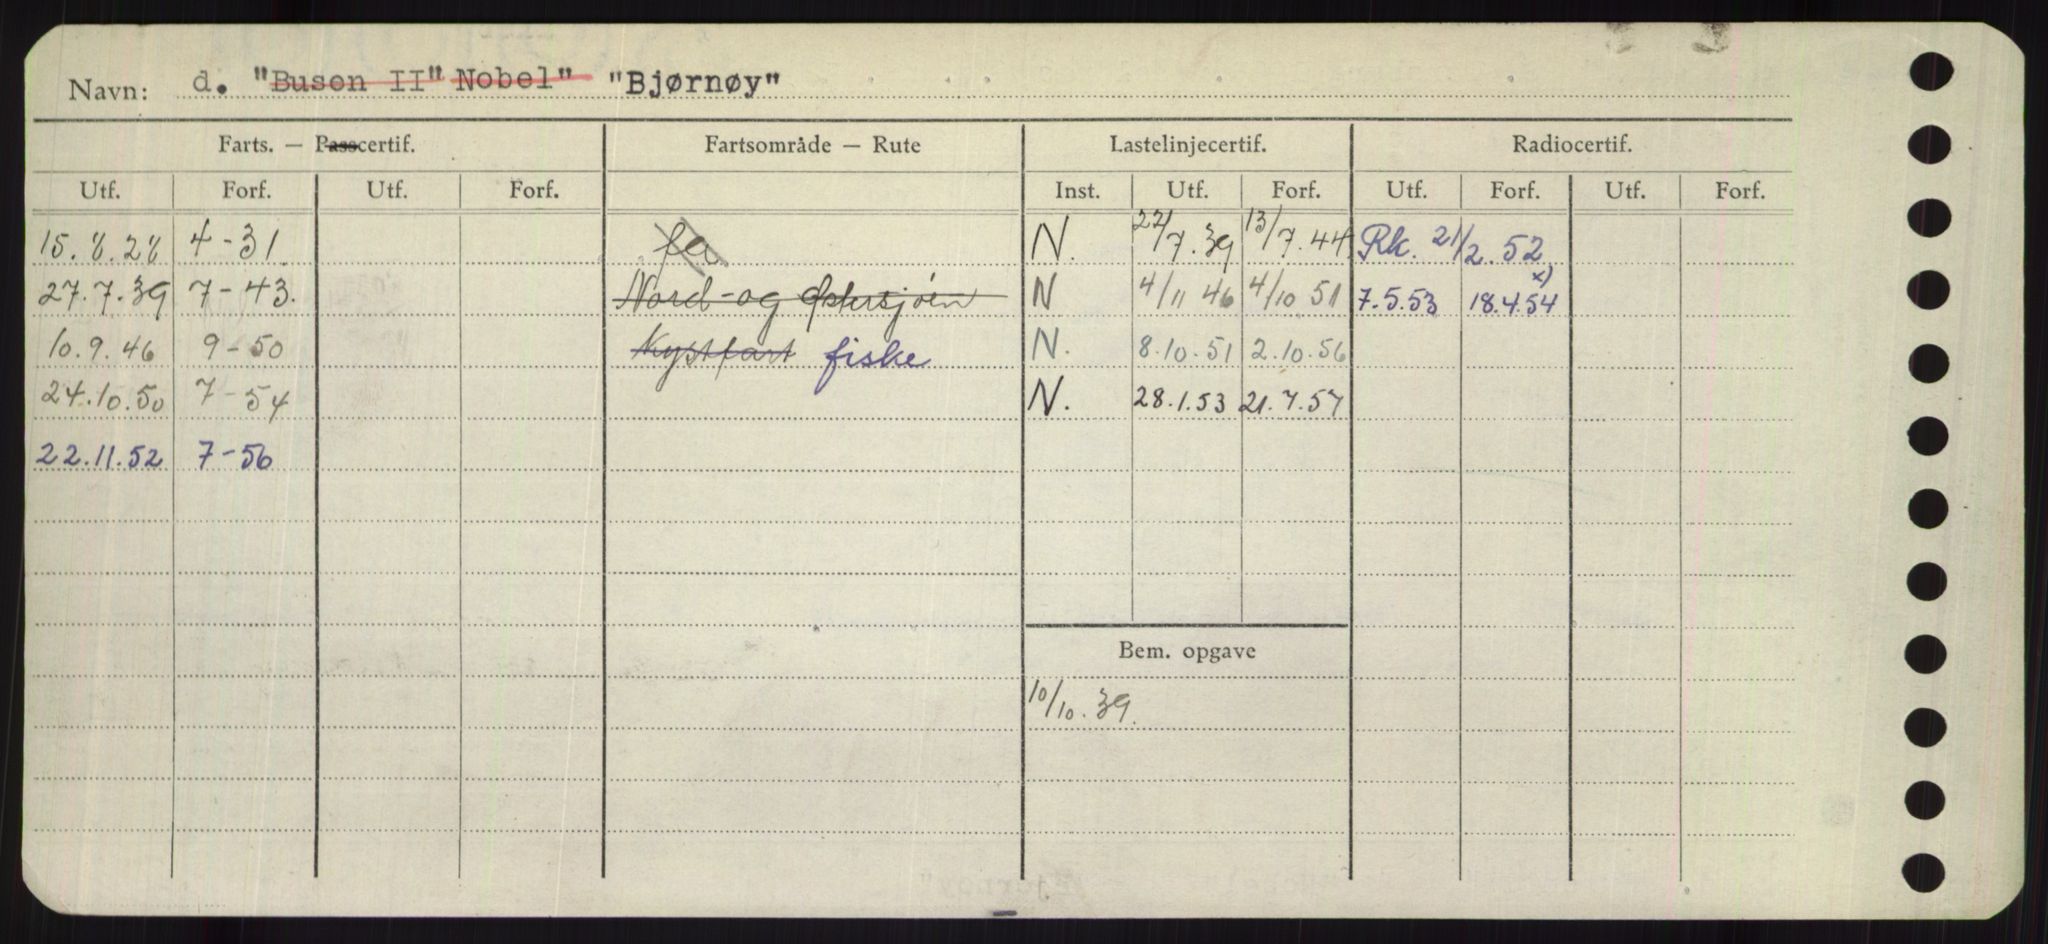 Navn: d. "Buson II" Nobel" "Bjørnøy"
Farts. — Passcertif. Fartsområde — Rute Lastelinjecertif. Radiocertif.
Utf. Forf. Utf. Forf. Inst. Utf. Forf. Utf. Forf. Utf. Forf.
15.8.28 4-31. N. 22/7.39 13/7.44 Rk. 21/2.52
27.7.39 7-43. Nord- og Østersjøen N 4/11 46 4/10 51 7.5.53 18.4.54 x)
10.9.46 9-50 Kystfart fiske N. 8.10.51 2.10.56
24.10.50 7-54 N. 28.1.53 21.7.57
22.11.52 7-56
Bem. opgave
10/10.39.